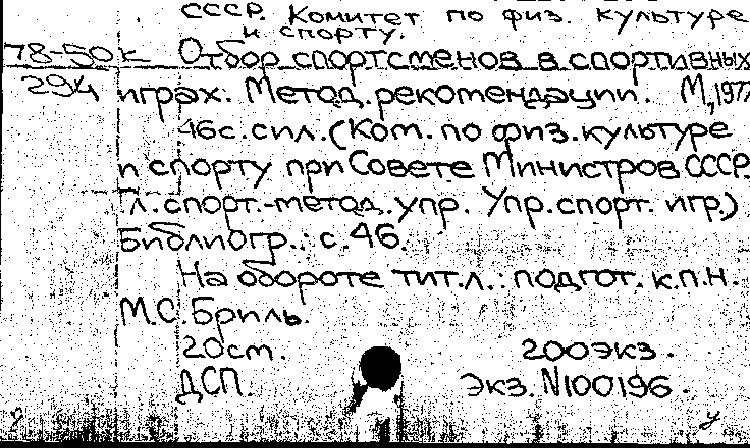 СССР. Комитет по физ. культуре
и спорту.
78-50к Отбор спортсменов в спортивных
294 играх. Метод. рекомендации. М., 1977
46с. с ил. (Ком. по физ. культуре
и спорту при Совете Министров СССР.
Гл. спорт.-метод. упр. Упр. спорт. игр.)
Библиогр.: с. 46.
На обороте тит. л.: подгот. к.п.н.
М.С. Бриль.
20см. 200экз.
ДСП. Экз. N100196.
у